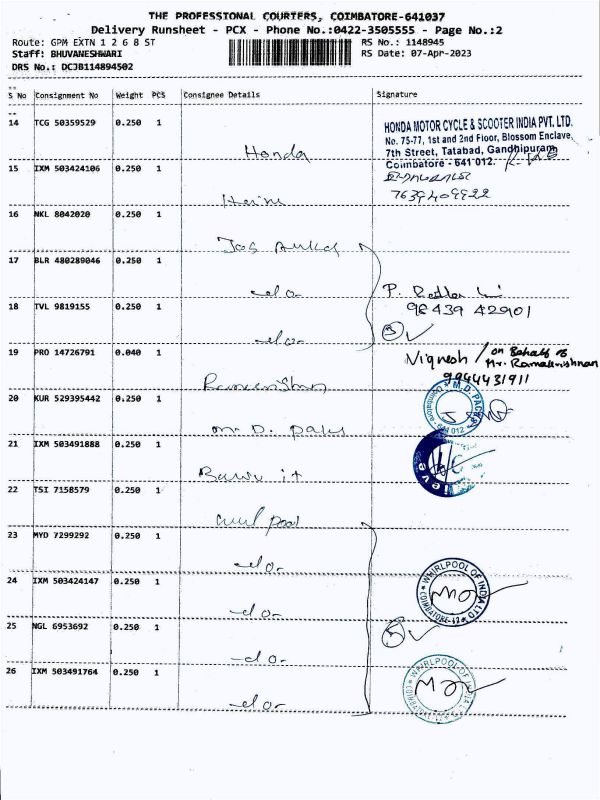 THE PROFESSIONAL COURIERS, COIMBATORE-641037
Delivery Runsheet - PCX - Phone No.:0422-3505555 - Page No.:2
Route: GPM EXTN 1 2 6 8 ST RS No.: 1148945
Staff: BHUVANESHWARI RS Date: 07-Apr-2023
DRS No.: DCJB114894502
S No Consignment No Weight PCS Consignee Details Signature
14 TCG 50359529 0.250 1 Honda
HONDA MOTOR CYCLE & SCOOTER INDIA PVT. LTD.
No. 75-77, 1st and 2nd Floor, Blossom Enclave,
7th Street, Tatabad, Gandhipuram
Coimbatore - 641 012.
15 IXM 503424106 0.250 1
7639409922
16 NKL 8042020 0.250 1 Jos
17 BLR 480289046 0.250 1 -do-
P.
98439 42901
18 TVL 9819155 0.250 1 -do-
3
19 PRO 14726791 0.040 1
Vignesh / on Behalf of
Mr. Ramakrishnan
9944431911
20 KUR 529395442 0.250 1 M. D.
M.D. PACK
Coimbatore - 641 012
21 IXM 503491888 0.250 1
22 TSI 7158579 0.250 1 pool
23 MYD 7299292 0.250 1 -do-
24 IXM 503424147 0.250 1 -do-
WHIRLPOOL OF INDIA LTD
COIMBATORE-12
25 NGL 6953692 0.250 1 -do-
5
26 IXM 503491764 0.250 1 -do-
WHIRLPOOL OF INDIA LTD
COIMBATORE-12